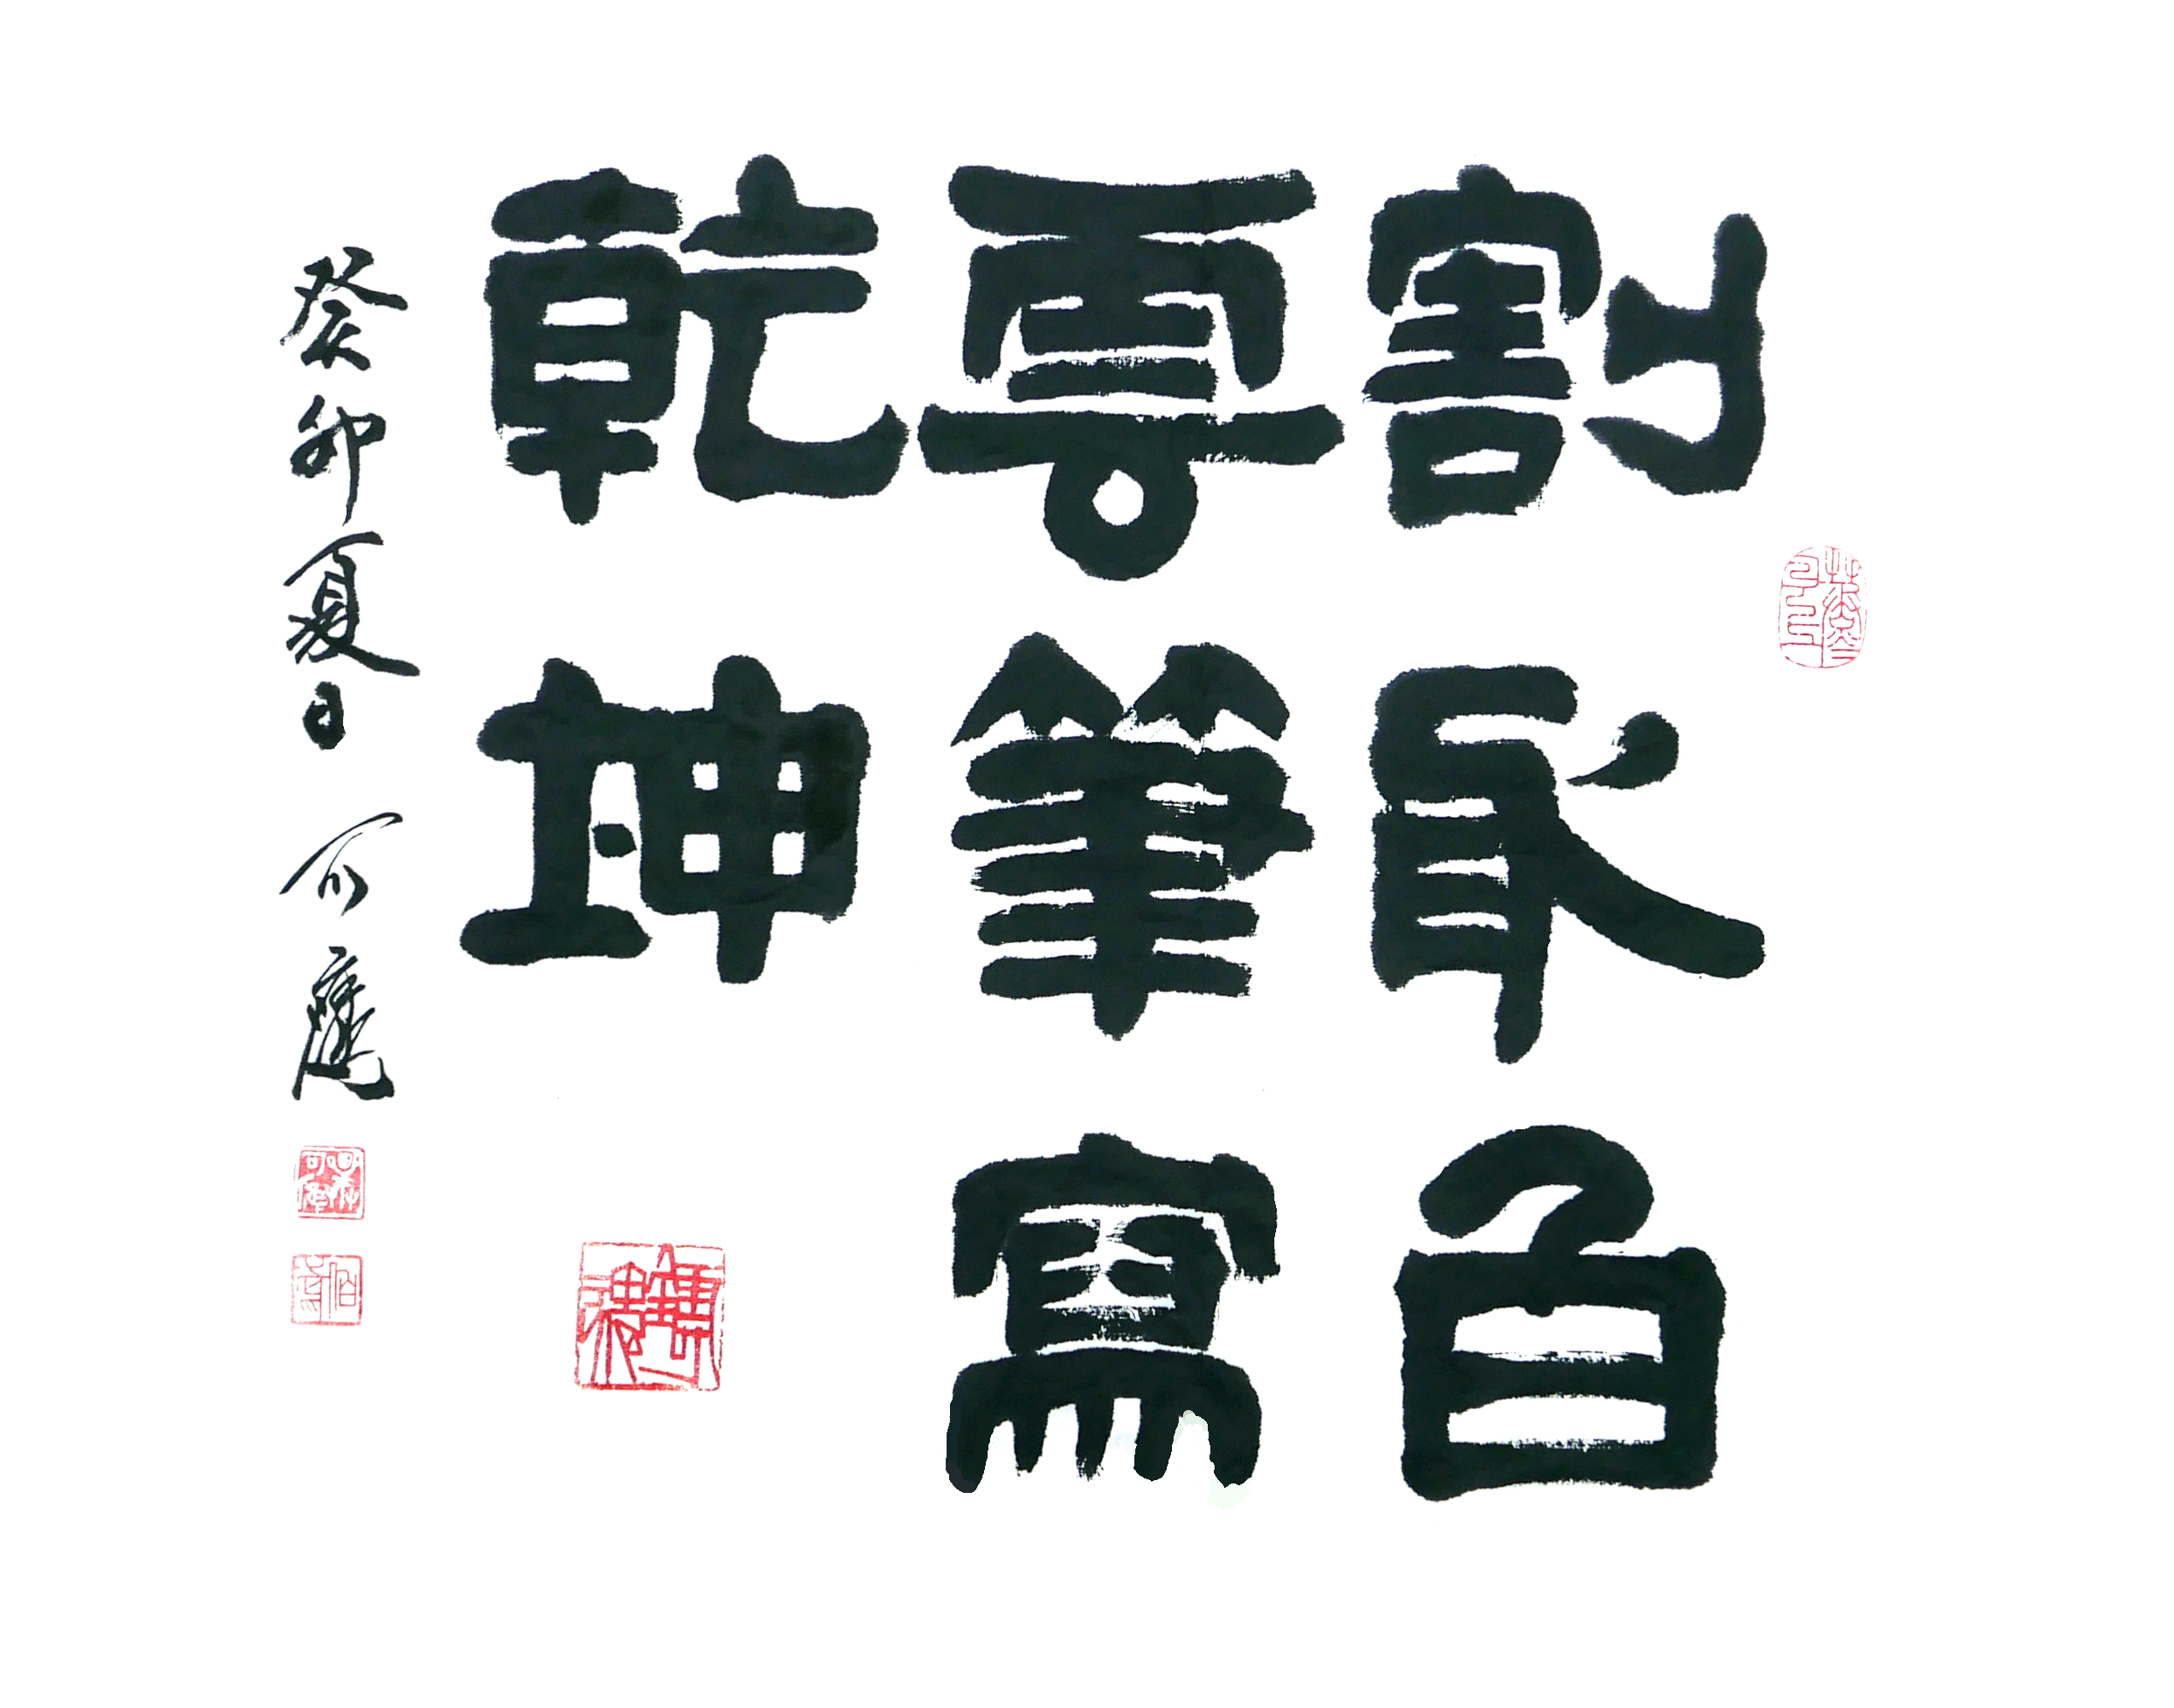 割取白
雲筆寫
乾坤
癸卯夏日